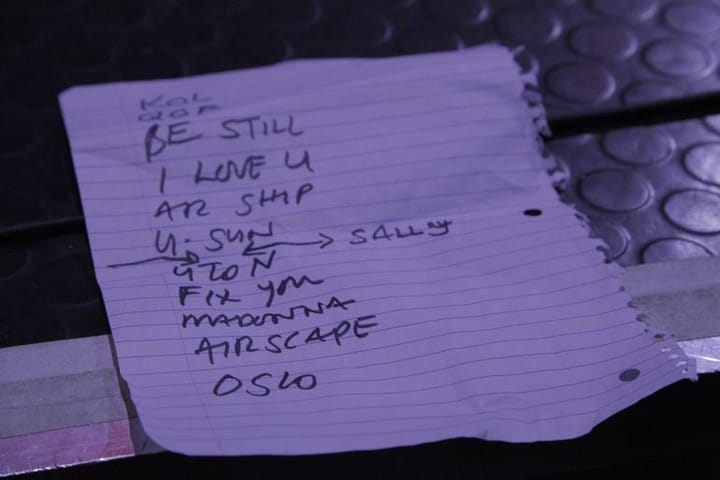 KOL
QOF
BE STILL
I LOVE U
AIR SHIP
U. SUN
SALLY
4 TO N
FIX YOU
MADONNA
AIRSCAPE
OSLO